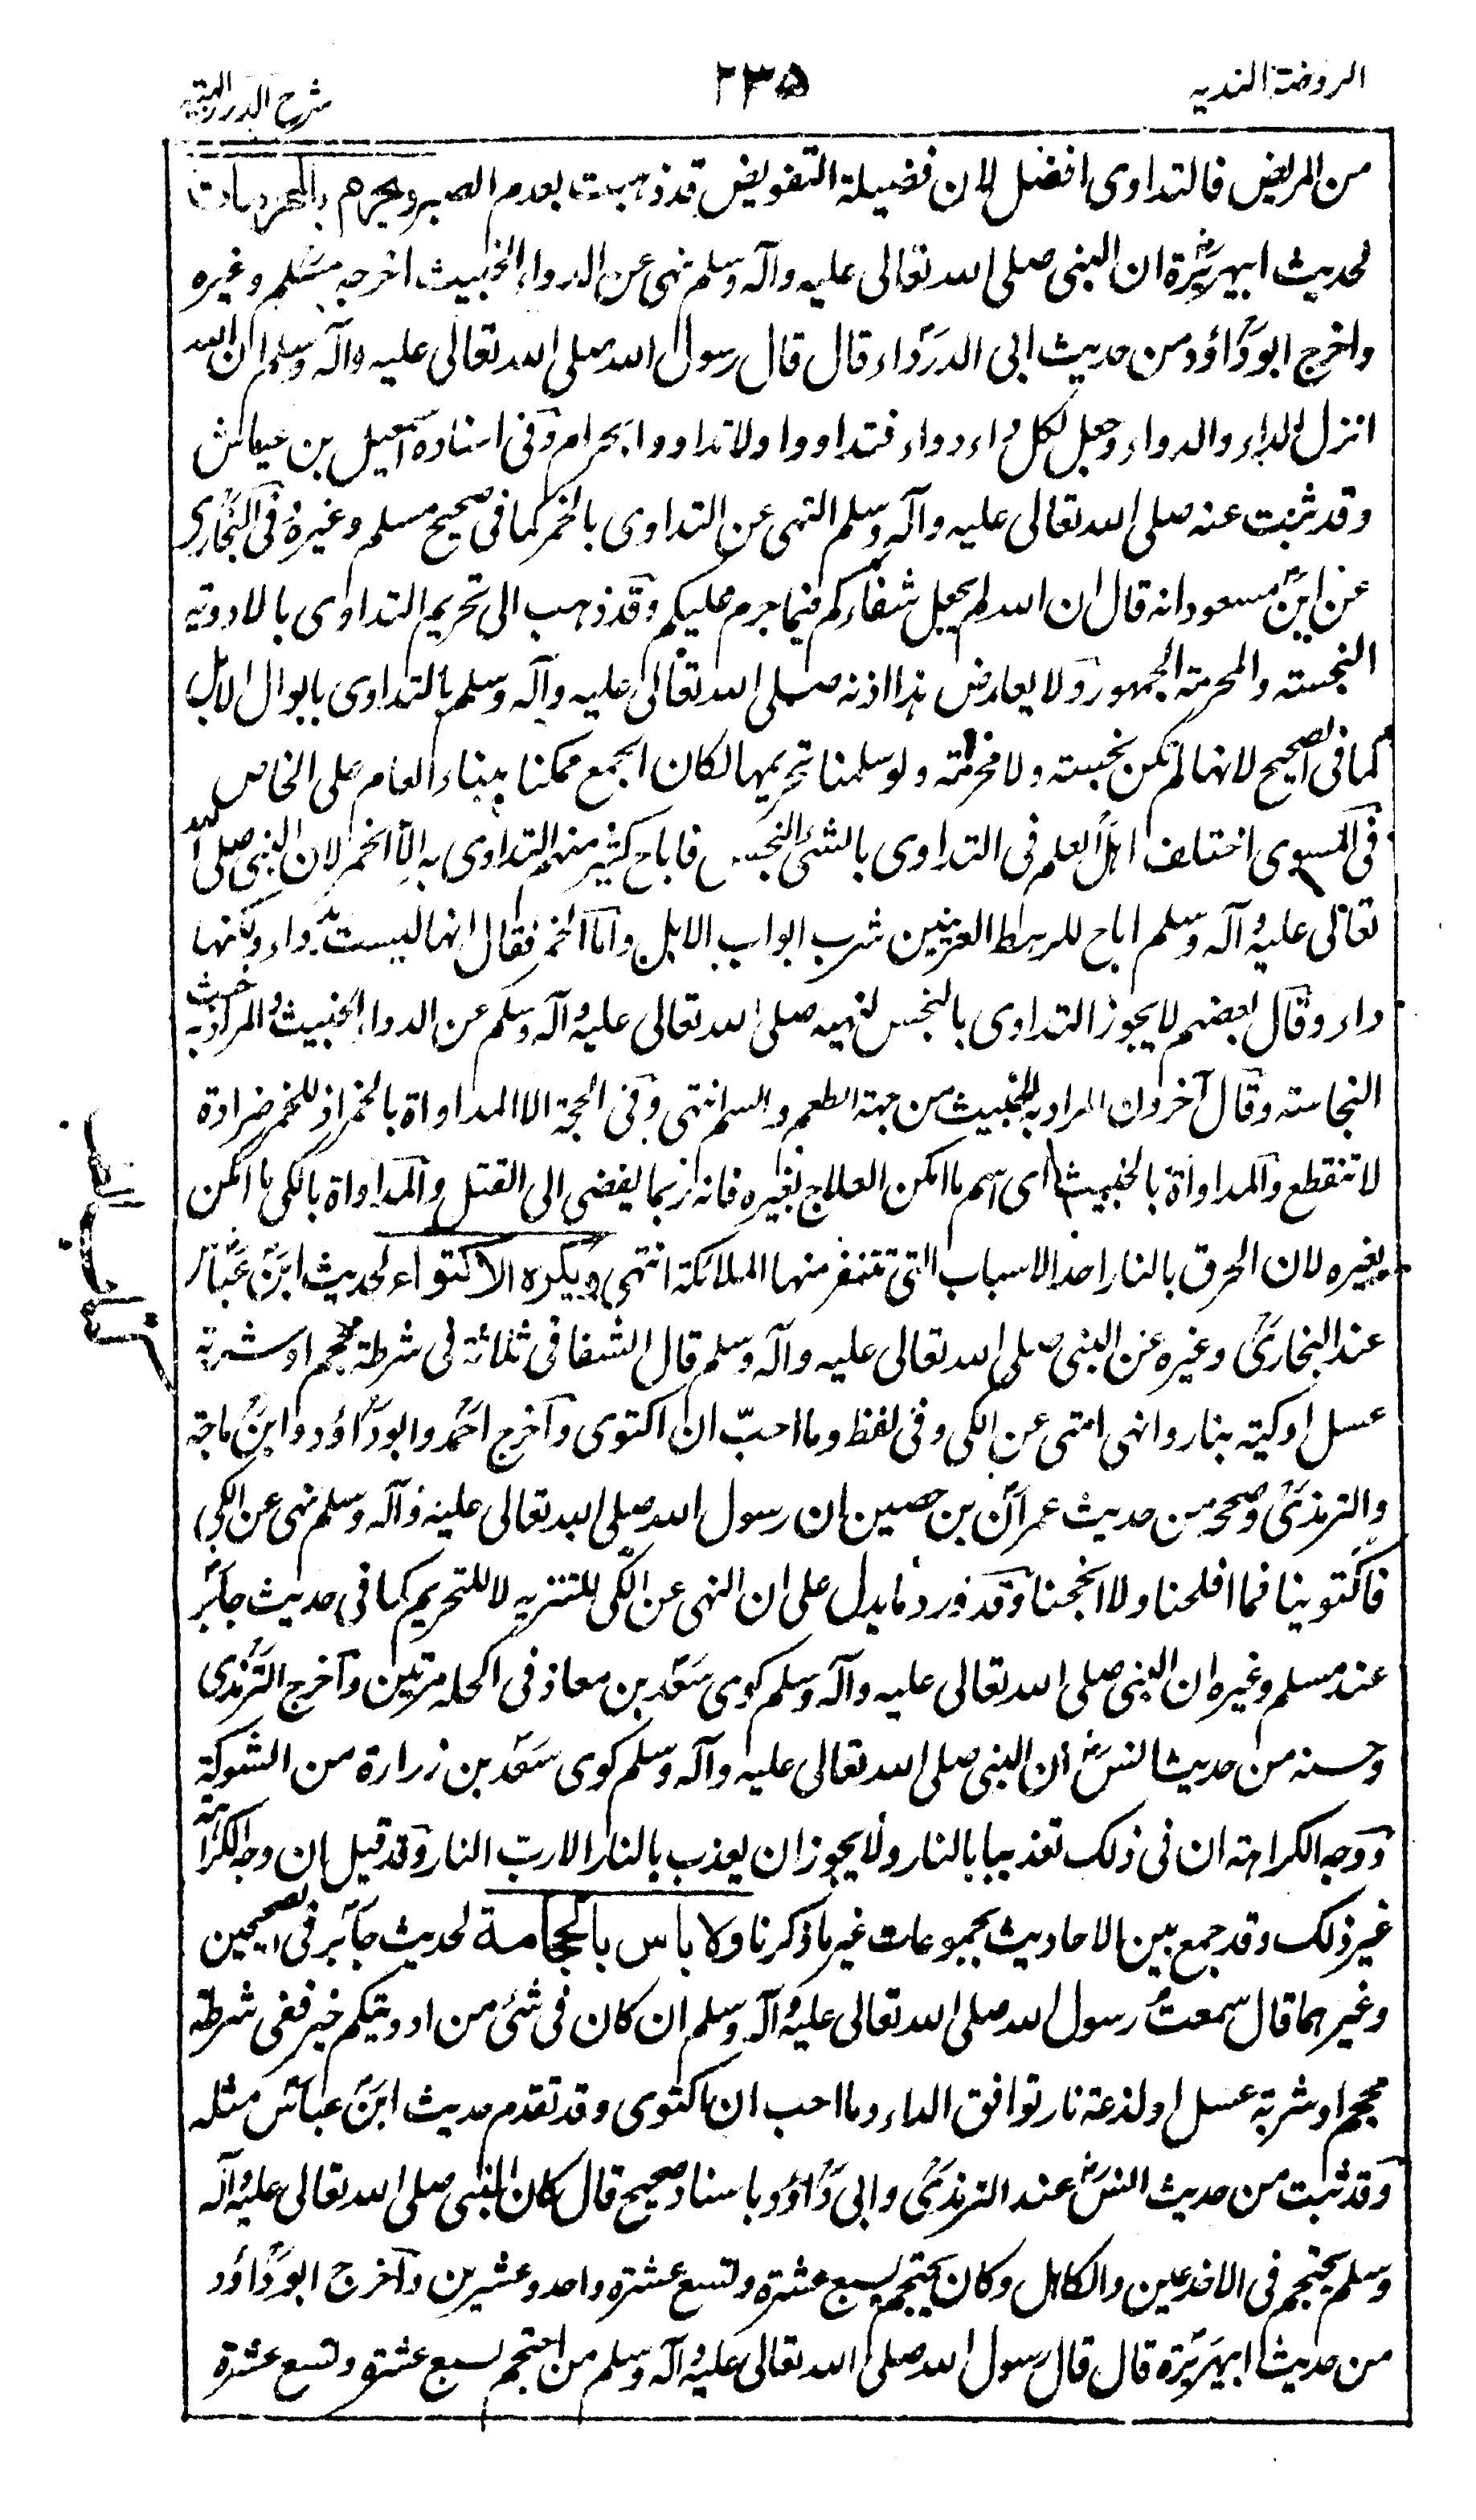 الروضة الندیہ
۲۳۵
شرح الدرر البہیہ
من المریض فالتداوی افضل لان فضیلۃ التفویض قد ذہبت بعدم الصبر ویحرم بالمحرمات
لحدیث ابیہریرۃ ان النبی صلی اللہ تعالی علیہ وآلہ وسلم نہی عن الدواء الخبیث اخرجہ مسلم وغیرہ
واخرج ابو داؤد من حدیث ابی الدرداء قال قال رسول اللہ صلی اللہ تعالی علیہ وآلہ وسلم ان اللہ
انزل الداء والدواء وجعل لکل داء دواء فتداووا ولا تداووا بحرام وفی اسنادہ اسمعیل بن عیاش
وقد ثبت عنہ صلی اللہ تعالی علیہ وآلہ وسلم النہی عن التداوی بالخمر کما فی صحیح مسلم وغیرہ وفی البخاری
عن ابن مسعود انہ قال ان اللہ لم یجعل شفاءکم فیما حرم علیکم وقد ذہب الی تحریم التداوی بالادویۃ
النجستہ والمحرمۃ الجمہور ولا یعارض ہذا اذنہ صلی اللہ تعالی علیہ وآلہ وسلم بالتداوی بابوال الابل
کما فی الصحیح لانہا لم تکن نجستہ ولا محرمۃ ولو سلمنا تحریمہا لکان الجمع ممکنا ببناء العام علی الخاص
فی المسوی اختلف اہل العلم فی التداوی بالشئ النجس فاباح کثیر منہم التداوی بہ الا الخمر لان النبی صلی اللہ
تعالی علیہ وآلہ وسلم اباح للرہط العرنیین شرب ابوال الابل واما الخمر فقال انہا لیست بدواء ولکنہا
داء وقال بعضہم لا یجوز التداوی بالنجس لنہیہ صلی اللہ تعالی علیہ وآلہ وسلم عن الدواء الخبیث والمراد بہ خبث
النجاستہ وقال آخرون المراد بہ الخبیث من جہۃ الطعم والسم انتہی وفی الحجۃ الا المداواۃ بالخمر اذ للخمر ضراوۃ
لا تنقطع والمداواۃ بالخبیث ای اسم ما امکن العلاج بغیرہ فانہ ربما یفضی الی القتل والمداواۃ بالکی ما امکن
بغیرہ لان الحرق بالنار احد الاسباب التی تتنفر منہا الملائکۃ انتہی ویکرہ الاکتواء لحدیث ابن عباس
عند البخاری وغیرہ عن النبی صلی اللہ تعالی علیہ وآلہ وسلم قال الشفا فی ثلاثۃ فی شرطۃ محجم او شربۃ
عسل او کیتہ بنار وانہی امتی عن الکی وفی لفظ وما احبّ ان اکتوی واخرج احمد وابو داؤد وابن ماجۃ
والترمذی وصححہ من حدیث عمران بن حصین ان رسول اللہ صلی اللہ تعالی علیہ وآلہ وسلم نہی عن الکی
فاکتوینا فما افلحنا ولا انجحنا وقد ورد ما یدل علی ان النہی عن الکی للتنزیہ لا للتحریم کما فی حدیث جابر
عند مسلم وغیرہ ان النبی صلی اللہ تعالی علیہ وآلہ وسلم کوی سعد بن معاذ فی اکحلہ مرتین واخرج الترمذی
وحسنہ من حدیث انس ان النبی صلی اللہ تعالی علیہ وآلہ وسلم کوی سعد بن زرارۃ من الشوکۃ
ووجہ الکراہۃ ان فی ذلک تعذیبا بالنار ولا یجوز ان یعذب بالنار الا ربّ النار وقد قیل ان وجہ الکراہۃ
غیر ذلک وقد جمع بین الاحادیث بجموعات غیر ما ذکرنا ولا باس بالحجامۃ لحدیث جابر فی الصحیحین
وغیرہما قال سمعت رسول اللہ صلی اللہ تعالی علیہ وآلہ وسلم ان کان فی شئ من ادویتکم خیر ففی شرطۃ
محجم او شربۃ عسل او لذعۃ نار توافق الداء وما احب ان اکتوی وقد تقدم حدیث ابن عباس مثلہ
وقد ثبت من حدیث انس عند الترمذی وابی داؤد باسناد صحیح قال کان النبی صلی اللہ تعالی علیہ وآلہ
وسلم یحتجم فی الاخدعین والکاہل وکان یحتجم لسبع عشرۃ وتسع عشرۃ واحد وعشرین واخرج ابو داؤد
من حدیث ابیہریرۃ قال قال رسول اللہ صلی اللہ تعالی علیہ وآلہ وسلم من احتجم لسبع عشرۃ وتسع عشرۃ